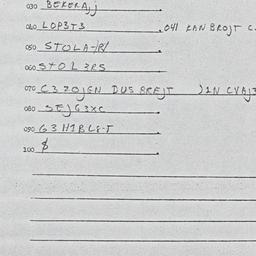 030 BEKERAjj
040 LOP3T3 .041 KAN BROJT C.
050 STOLA-|R/
060 STOL2RS
070 C3ZOJEN DUS BREJT
080 SEJG3XC
090 G3H1BLE-T
100 $